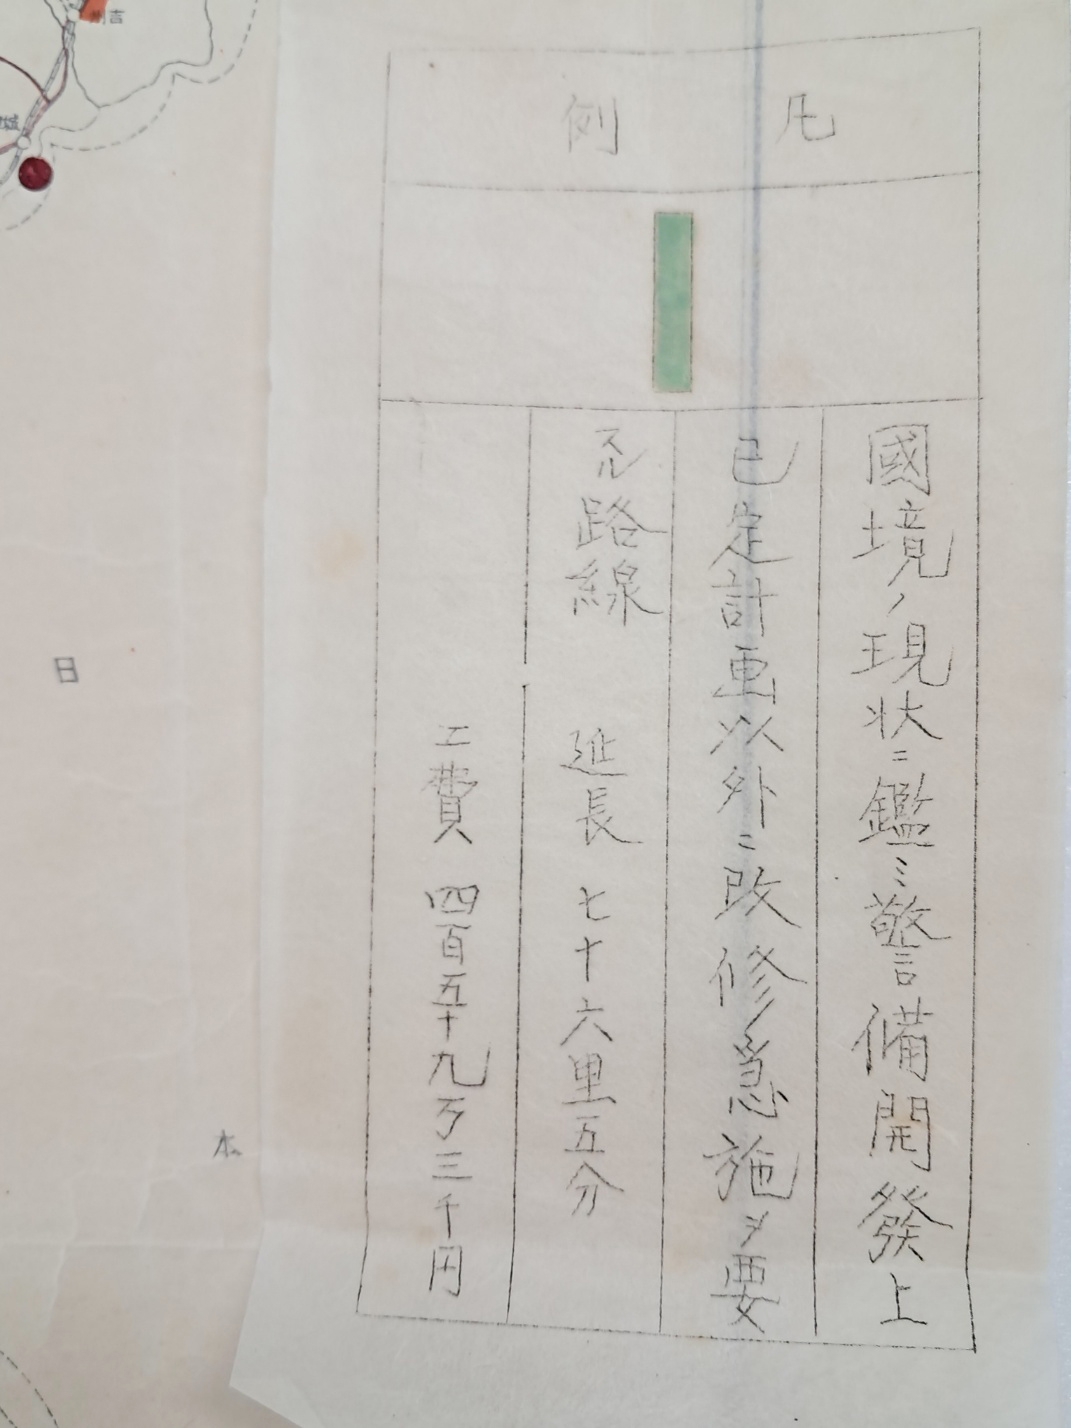 凡例
國境ノ現状ニ鑑ミ警備開發上
已定計画以外ニ改修急施ヲ要
スル路線 延長 七十六里五分
工費 四百五十九万三千円
吉州
城
日
本